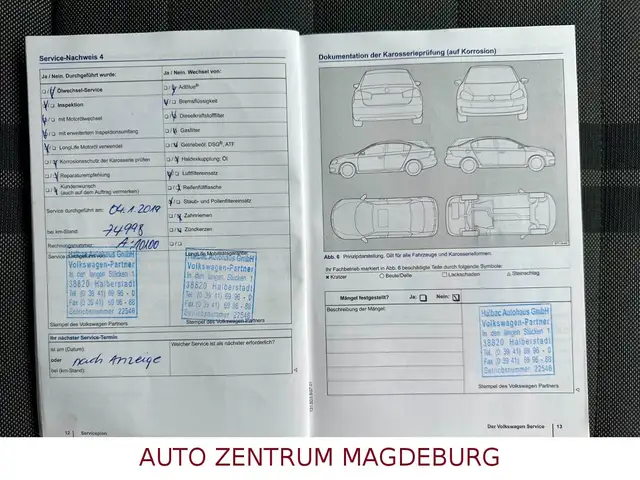 Service-Nachweis 4
Ja / Nein. Durchgeführt wurde:
Ölwechsel-Service
Inspektion
mit Motorölwechsel
mit erweitertem Inspektionsumfang
LongLife Motoröl verwendet
Korrosionsschutz der Karosserie prüfen
Reparaturempfehlung
Kundenwunsch
(auch auf dem Auftrag vermerken)
Service durchgeführt am: 04.1.2019
bei km-Stand: 74998
Rechnungsnummer:
Service durchgeführt von:
Halbac Autohaus GmbH
Volkswagen-Partner
In den langen Stücken 1
38820 Halberstadt
Tel (0 39 41) 69 96 - 0
Fax (0 39 41) 69 96 - 80
Betriebsnummer 22546
Stempel des Volkswagen Partners
Ja / Nein. Wechsel von:
AdBlue®
Bremsflüssigkeit
Dieselkraftstofffilter
Gasfilter
Getriebeöl: DSG®, ATF
Haldexkupplung: Öl
Luftfiltereinsatz
Reifenfüllflasche
Staub- und Pollenfiltereinsatz
Zahnriemen
Zündkerzen
LongLife Mobilitätsgarantie
Halbac Autohaus GmbH
Volkswagen-Partner
In den langen Stücken 1
38820 Halberstadt
Tel (0 39 41) 69 96 - 0
Fax (0 39 41) 69 96 - 80
Betriebsnummer 22546
Stempel des Volkswagen Partners
Ihr nächster Service-Termin
ist am (Datum):
oder nach Anzeige
bei (km-Stand):
Welcher Service ist als nächster erforderlich?
12 Serviceplan
Dokumentation der Karosserieprüfung (auf Korrosion)
Abb. 6 Prinzipdarstellung. Gilt für alle Fahrzeuge und Karosserieformen.
Ihr Fachbetrieb markiert in Abb. 6 beschädigte Teile durch folgende Symbole:
× Kratzer ○ Beule/Delle □ Lackschaden △ Steinschlag
Mängel festgestellt? Ja: Nein:
Beschreibung der Mängel:
Halbac Autohaus GmbH
Volkswagen-Partner
In den langen Stücken 1
38820 Halberstadt
Tel (0 39 41) 69 96 - 0
Fax (0 39 41) 69 96 - 80
Betriebsnummer 22546
Stempel des Volkswagen Partners
Der Volkswagen Service 13
AUTO ZENTRUM MAGDEBURG